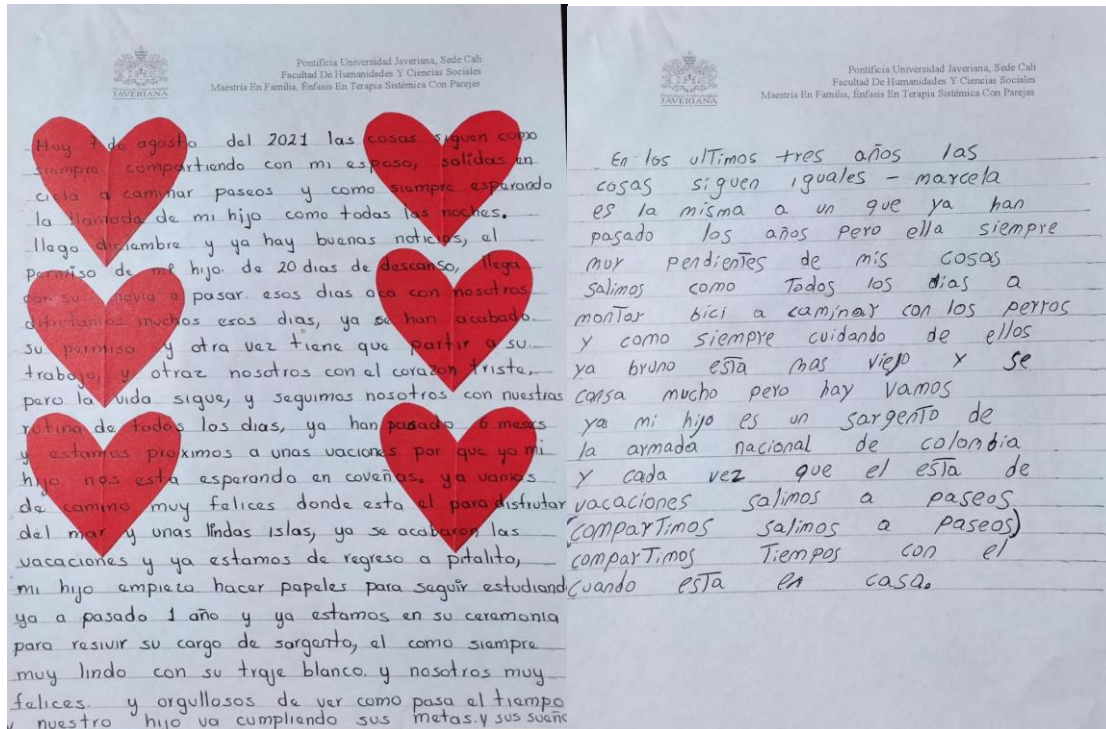 Pontificia Universidad Javeriana, Sede Cali
Facultad De Humanidades Y Ciencias Sociales
Maestría En Familia, Énfasis En Terapia Sistémica Con Parejas
JAVERIANA
Hoy 7 de agosto del 2021 las cosas siguen como
siempre compartiendo con mi esposo, salidas en
cicla a caminar paseos y como siempre esperando
la llamada de mi hijo como todas las noches.
llego diciembre y ya hay buenas noticias, el
permiso de mi hijo. de 20 dias de descanso, llega
con su novia a pasar. esos dias aca con nosotros
disfrutamos muchos esos dias, ya se han acabado.
su permiso y otra vez tiene que partir a su
trabajo, y otraz nosotros con el corazon triste,
pero la vida sigue, y seguimos nosotros con nuestras
rutina de todos los dias, ya han pasado 6 meses
y estamos proximos a unas vaciones por que ya mi
hijo nos esta esperando en coveñas. ya vamos
de camino muy felices donde esta el para disfrutar
del mar y unas lindas islas, ya se acabaron las
vacaciones y ya estamos de regreso a pitalito,
mi hijo empieza hacer papeles para seguir estudiand
ya a pasado 1 año y ya estamos en su ceremonia
para resivir su cargo de sargento, el como siempre
muy lindo con su traje blanco. y nosotros muy
felices. y orgullosos de ver como pasa el tiempo
y nuestro hijo va cumpliendo sus metas. y sus sueño
Pontificia Universidad Javeriana, Sede Cali
Facultad De Humanidades Y Ciencias Sociales
Maestría En Familia, Énfasis En Terapia Sistémica Con Parejas
JAVERIANA
En los ulTimos tres años las
cosas siguen iguales - marcela
es la misma a un que ya han
pasado los años pero ella siempre
muy pendientes de mis cosas
salimos como Todos los dias a
monTar bici a caminar con los perros
y como siempre cuidando de ellos
ya bruno esTa mas viejo y se
cansa mucho pero hay vamos
ya mi hijo es un sargenTo de
la armada nacional de colombia
y cada vez que el esTa de
vacaciones salimos a paseos
(comparTimos salimos a paseos)
comparTimos Tiempos con el
cuando esTa en casa.